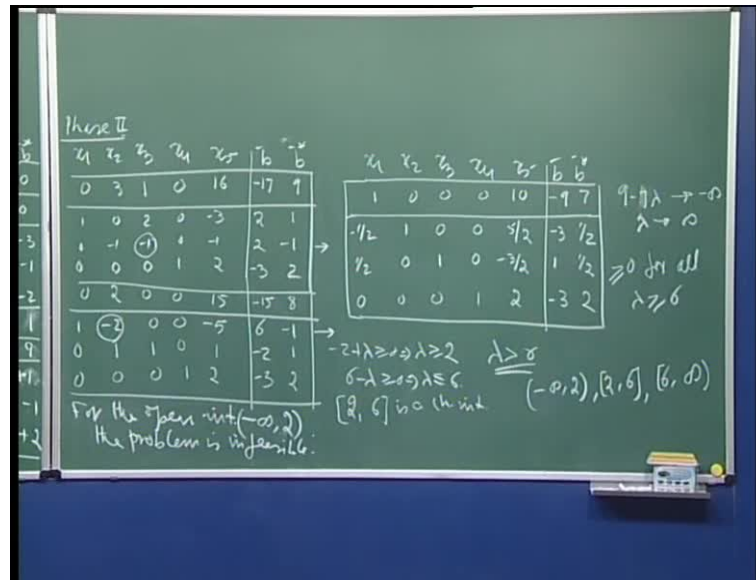 b*
0
0
-3
-1
-2
1
9
-1
+2
Phase II
x1 x2 x3 x4 x5 b̄ b̄*
0 3 1 0 16 -17 9
1 0 2 0 -3 2 1
0 -1 -1 0 -1 2 -1
0 0 0 1 2 -3 2
0 2 0 0 15 -15 8
1 -2 0 0 -5 6 -1
0 1 1 0 1 -2 1
0 0 0 1 2 -3 2
For the open int. (-∞, 2)
the problem is infeasible.
x1 x2 x3 x4 x5 b̄ b̄*
1 0 0 0 10 -9 7
-1/2 1 0 0 5/2 -3 1/2
1/2 0 1 0 -3/2 1 1/2
0 0 0 1 2 -3 2
-2+λ≥0⇒λ≥2
6-λ≥0⇒λ≤6.
[2, 6] is a ch int.
λ → ∞
≥0 for all
λ≥6
(-∞, 2), [2, 6], [6, ∞)